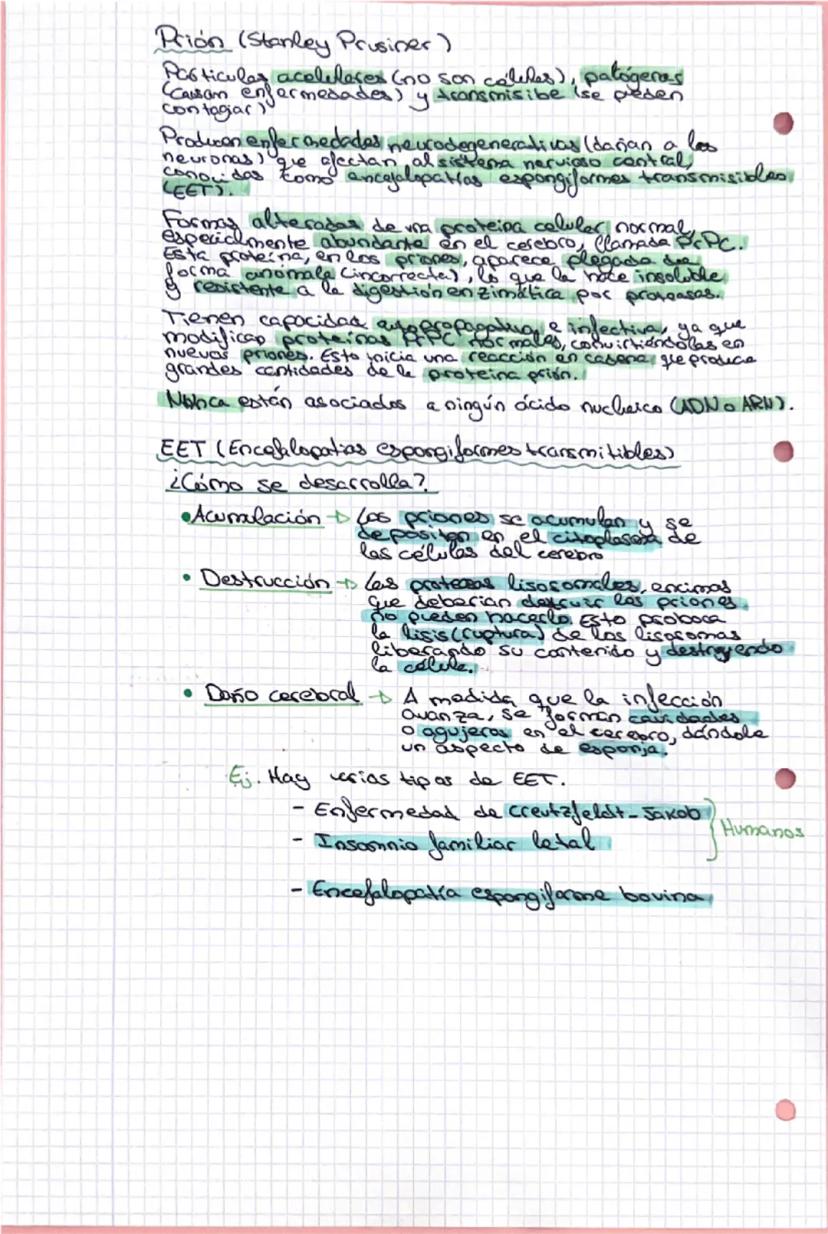 Prión (Stanley Prusiner)
Partículas acelulares (no son células), patógenas
(causan enfermedades) y transmisibe (se pueden
contagiar)
Producen enfermedades neurodegenerativas (dañan a las
neuronas) que afectan al sistema nervioso central,
conocidas como encefalopatías espongiformes transmisibles
(EET).
Formas alteradas de una proteína celular normal,
especialmente abundante en el cerebro, llamada PrPC.
Esta proteína, en los priones, aparece plegada de
forma anómala (incorrecta), lo que la hace insoluble
y resistente a la digestión enzimática por proteasas.
Tienen capacidad autopropagativa e infectiva, ya que
modifican proteínas PrPC normales, convirtiéndolas en
nuevos priones. Esto inicia una reacción en cadena, que produce
grandes cantidades de la proteína prión.
Nunca están asociados a ningún ácido nucleico (ADN o ARN).
EET (Encefalopatías espongiformes transmitibles)
¿Cómo se desarrolla?
• Acumulación → Los priones se acumulan y se
depositan en el citoplasma de
las células del cerebro
• Destrucción → Las proteasas lisosomales, encimas
que deberían destruir los priones
no pueden hacerlo. Esto proboca
la lisis (ruptura) de los lisosomas
liberando su contenido y destruyendo
la célula.
• Daño cerebral → A medida que la infección
avanza, se forman cavidades
o agujeros en el cerebro, dándole
un aspecto de esponja.
Ej. Hay varias tipos de EET.
- Enfermedad de Creutzfeldt-Jakob
- Insomnio familiar letal
Humanos
- Encefalopatía espongiforme bovina